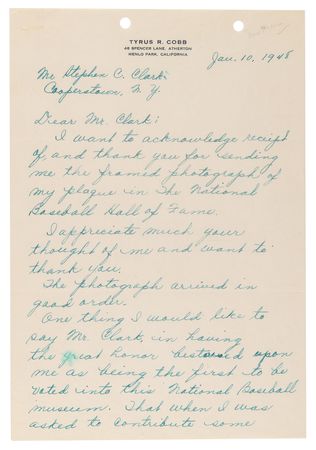 TYRUS R. COBB
48 SPENCER LANE, ATHERTON
MENLO PARK, CALIFORNIA
Jan. 10, 1948
Mr Stephen C. Clark:
Cooperstown, N.Y.
Dear Mr. Clark:
I want to acknowledge receipt
of, and thank you for sending
me the framed photograph of
my plaque in The National
Baseball Hall of Fame.
I appreciate much your
thought of me and want to
thank you.
The photograph arrived in
good order.
One thing I would like to
say Mr. Clark, in having
the great honor bestowed upon
me as being the first to be
voted into this National Baseball
museum. That when I was
asked to contribute some